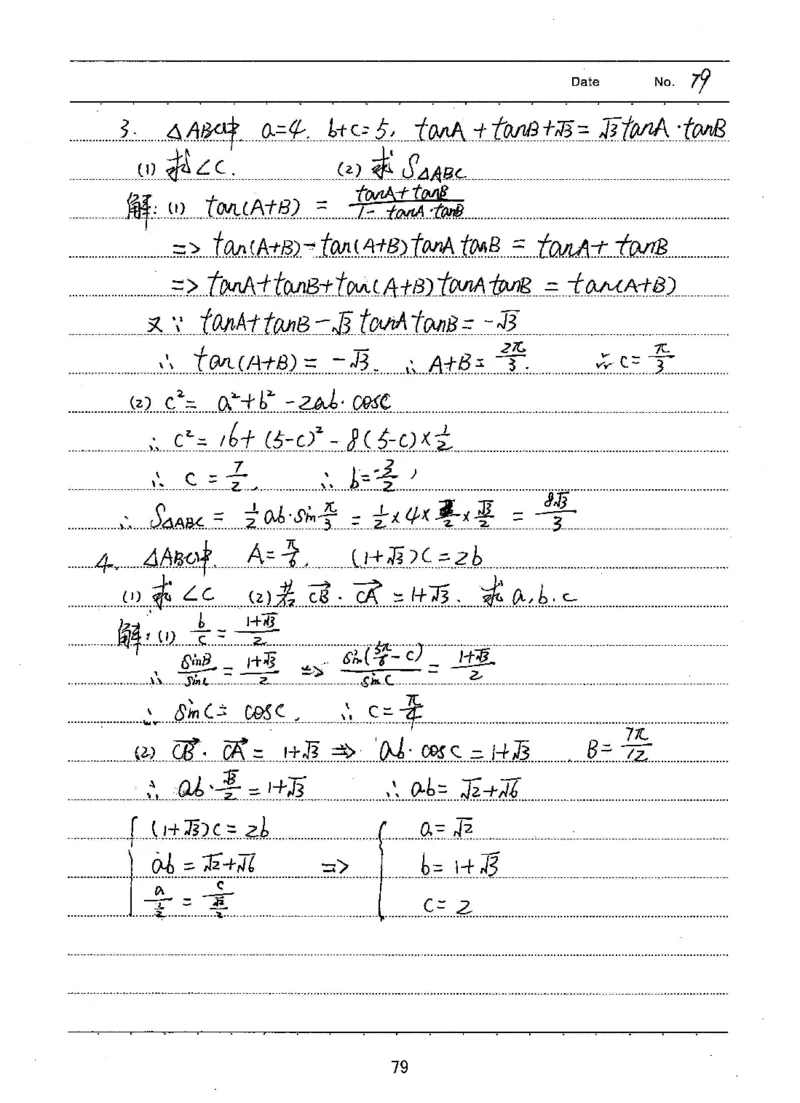 Date No. 79
3. △ABC中, a=4, b+c=5, tanA+tanB+√3=√3tanA·tanB
(1) 求∠C. (2) 求S△ABC
解: (1) tan(A+B) = (tanA+tanB)/(1-tanA·tanB)
=> tan(A+B)-tan(A+B)tanAtanB = tanA+tanB
=> tanA+tanB+tan(A+B)tanAtanB = tan(A+B)
又∵ tanA+tanB-√3tanAtanB=-√3
∴ tan(A+B)=-√3. ∴ A+B=2π/3. ∴ C=π/3
(2) c²= a²+b²-2ab·cosC
∴ c²=16+(5-c)²-8(5-c)×1/2
∴ c=7/2, ∴ b=3/2,
∴ S△ABC = 1/2ab·sinπ/3 = 1/2×4×3/2×√3/2 = 8√3/3
4. △ABC中, A=π/6, (1+√3)c=2b
(1) 求∠C (2) 若CB·CA=1+√3. 求a,b.c
解: (1) b/c=(1+√3)/2
∴ sinB/sinC=(1+√3)/2 => sin(5π/6-C)/sinC=(1+√3)/2
∴ sinC=cosC, ∴ C=π/4
(2) CB·CA=1+√3 => ab·cosC=1+√3 B=7π/12
∴ ab·√2/2=1+√3 ∴ ab=√2+√6
{ (1+√3)c=2b { a=√2
ab=√2+√6 => b=1+√3
a/(1/2)=c/(√2/2) c=2
79